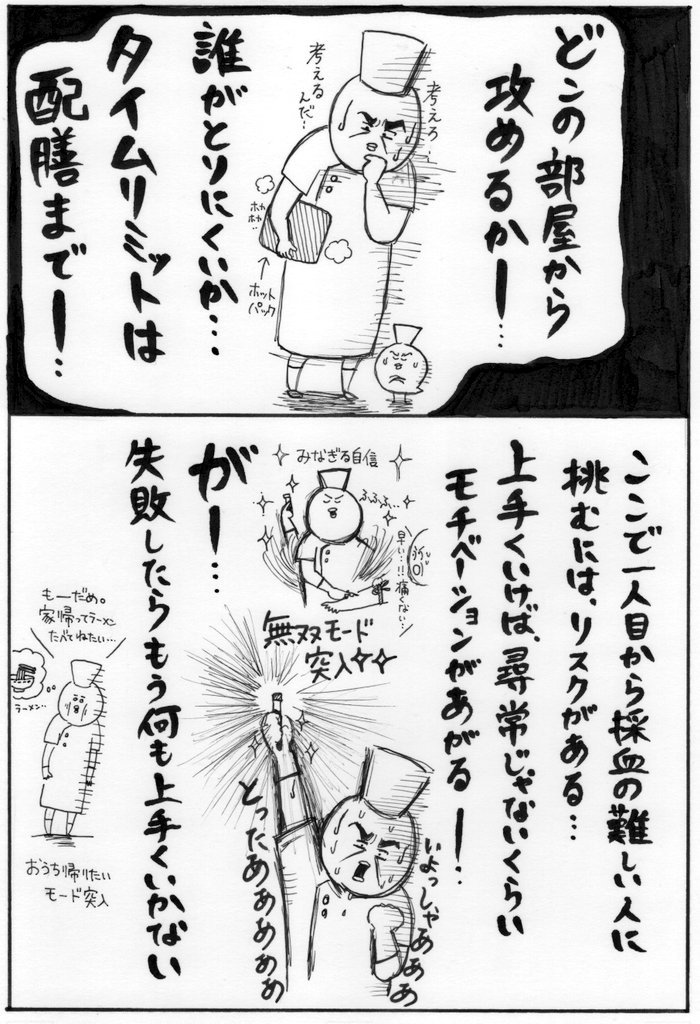 どこの部屋から
攻めるかー…
考えろ…
考える
んだ…
ホカ
ホカ…
ホット
パック
誰がとりにくいか…
タイムリミットは
配膳までー…
ここで一人目から採血の難しい人に
挑むには、リスクがある…
上手くいけば、尋常じゃないくらい
モチベーションがあがるー…
みなぎる自信
ふふふ…
早い…!!
痛くない…
無双モード
突入
いよっしゃあああ
とったあああああ
がー…
失敗したらもう何も上手くいかない
もーだめ。
家帰ってラーメン
たべてねたい…
ラーメン…
おうち帰りたい
モード突入